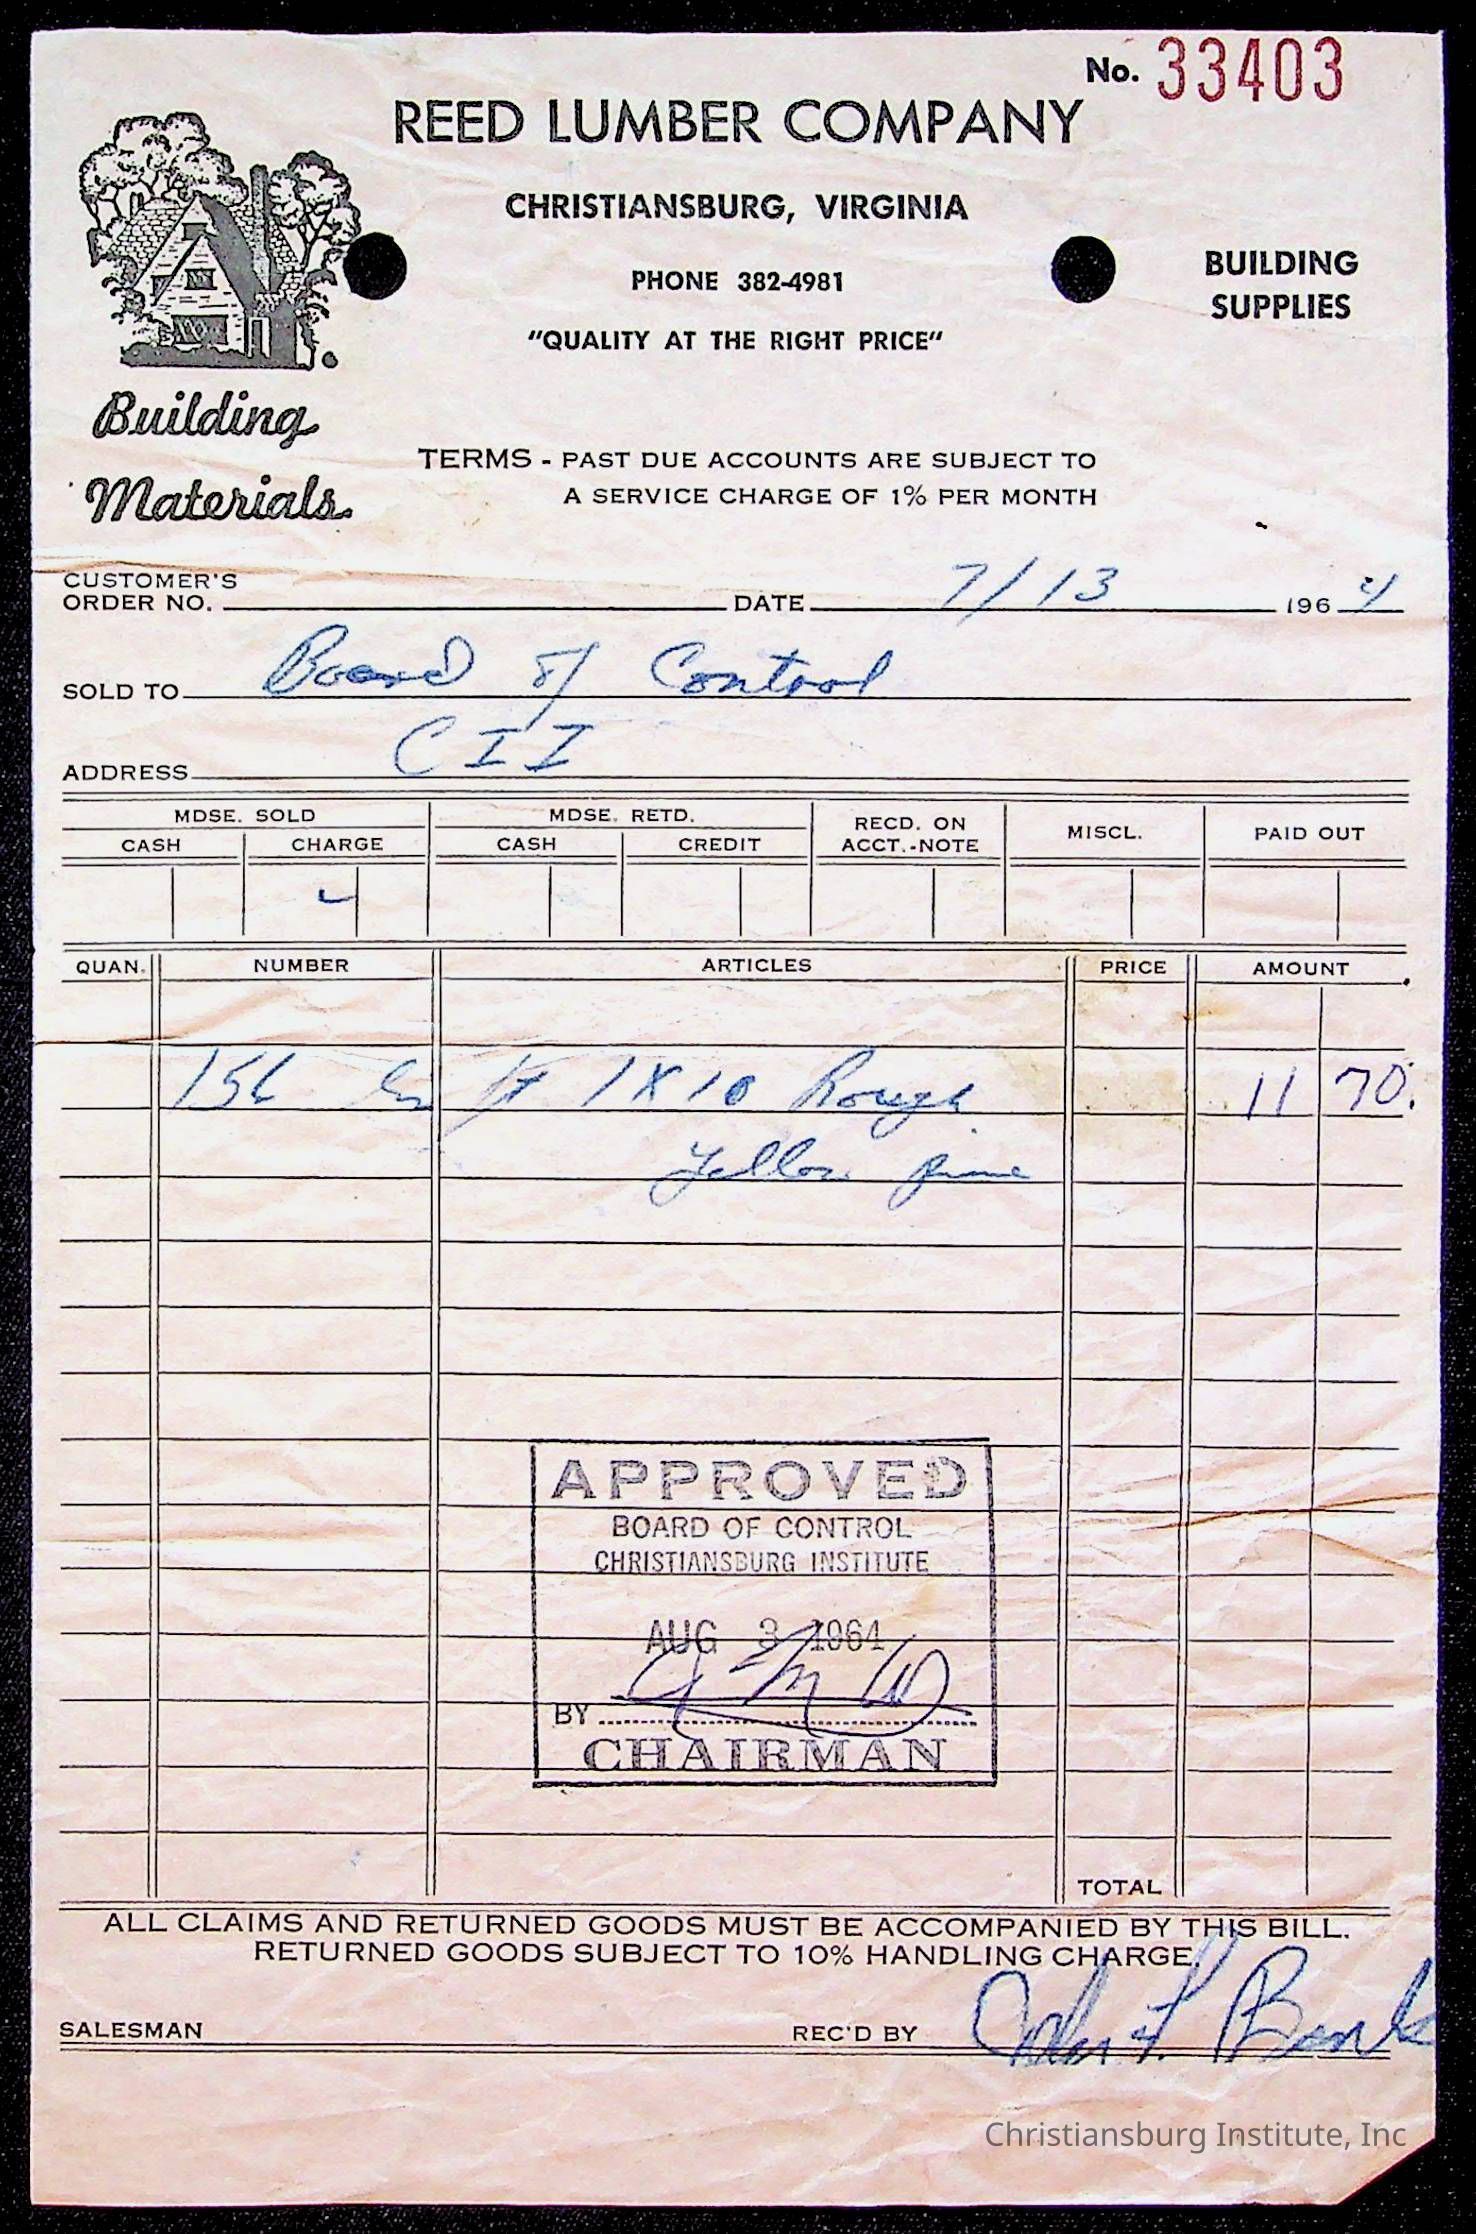 No. 33403
REED LUMBER COMPANY
CHRISTIANSBURG, VIRGINIA
PHONE 382-4981
BUILDING
SUPPLIES
"QUALITY AT THE RIGHT PRICE"
Building
Materials
TERMS - PAST DUE ACCOUNTS ARE SUBJECT TO
A SERVICE CHARGE OF 1% PER MONTH
CUSTOMER'S
ORDER NO. DATE 7/13 1964
SOLD TO Board of Control
ADDRESS CII
MDSE. SOLD MDSE. RETD. RECD. ON ACCT.-NOTE MISCL. PAID OUT
CASH CHARGE CASH CREDIT
QUAN. NUMBER ARTICLES PRICE AMOUNT
156 ft 1X10 Rough 11 70
Yellow pine
APPROVED
BOARD OF CONTROL
CHRISTIANSBURG INSTITUTE
AUG 3 1964
BY
CHAIRMAN
TOTAL
ALL CLAIMS AND RETURNED GOODS MUST BE ACCOMPANIED BY THIS BILL.
RETURNED GOODS SUBJECT TO 10% HANDLING CHARGE.
SALESMAN REC'D BY
Christiansburg Institute, Inc